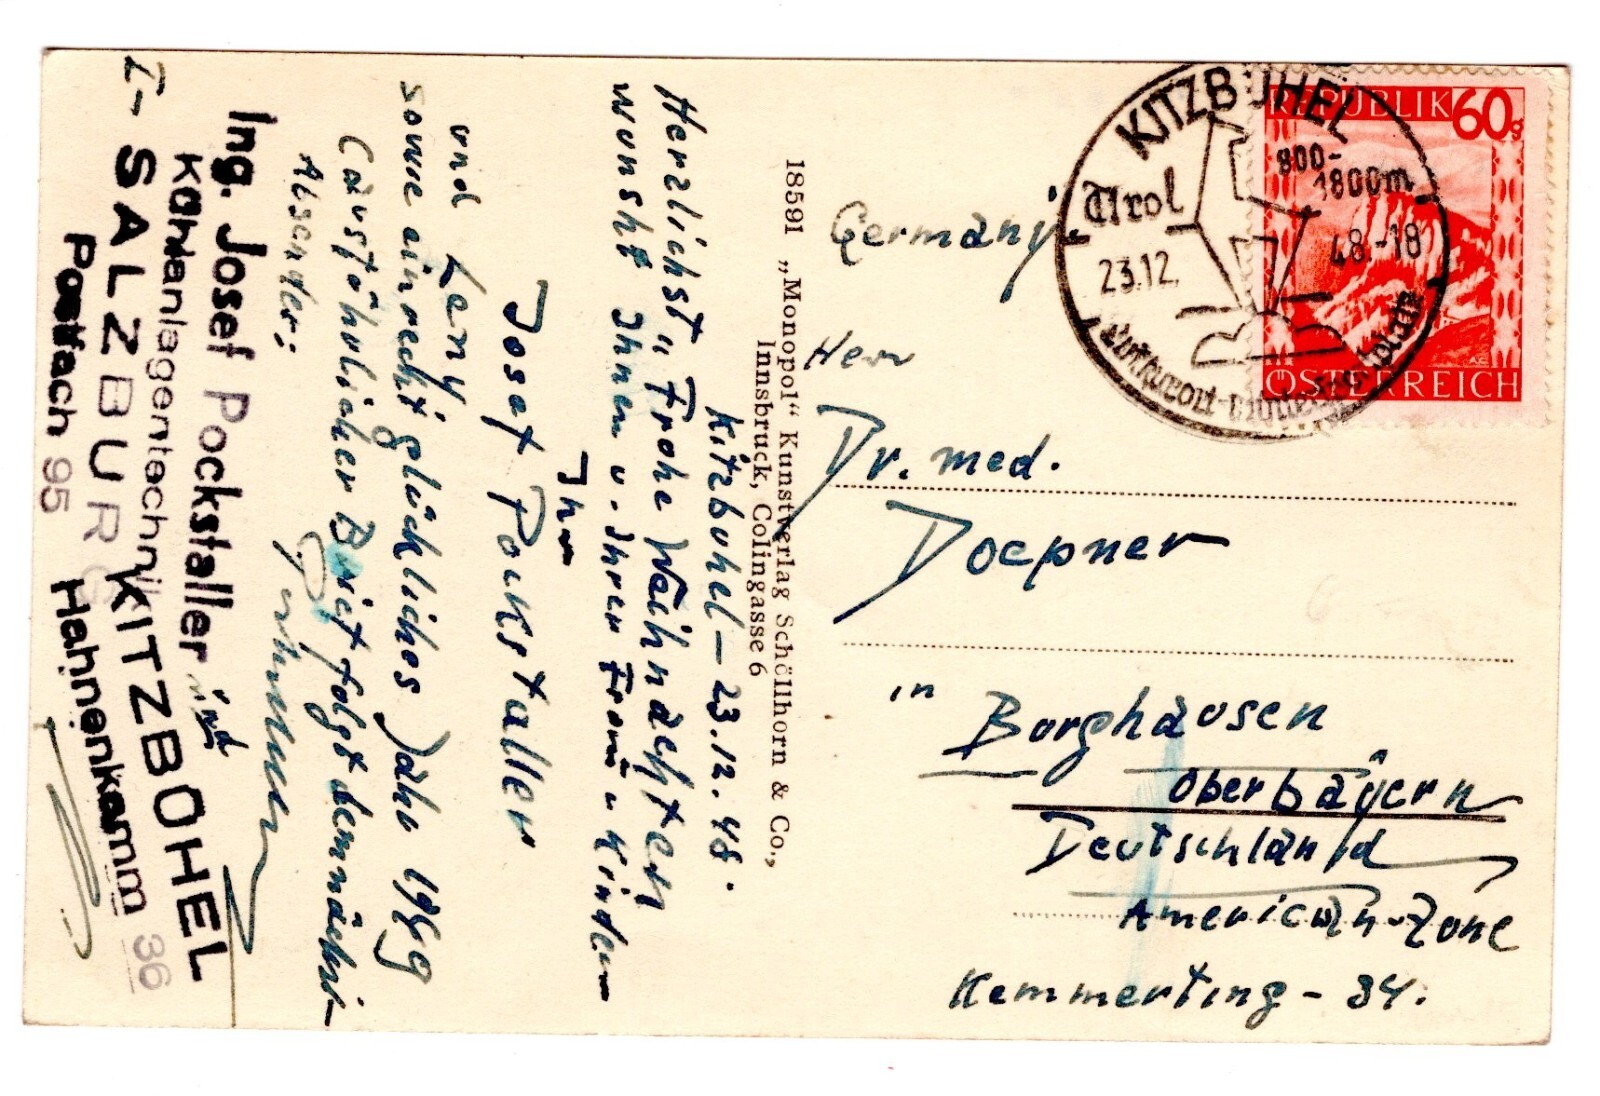 Kitzbühel – 23.12.48.
Herzlichst „Frohe Weihnachten
wünscht Ihnen u. Ihrer Frau u Kindern
Ihr
Josef Pockstaller
und Leny
sowie ein recht glückliches Jahr 1949
Ausführlicher Brief folgt demnächst
Absender:
Ing. Josef Pockstaller
Kühlanlagentechnik und
I- SALZBURG KITZBÜHEL
Postfach 95 Hahnenkamm 36
18591 „Monopol“ Kunstverlag Schöllhorn & Co.,
Innsbruck, Colingasse 6
KITZBÜHEL
Tirol
800-
1800m
23.12.
48.-18
REPUBLIK 60g
ÖSTERREICH
Germany.
Herr
Dr. med.
Doepner
in
Burghausen
Oberbayern
Deutschland
American-Zone
Kemmerting - 34.